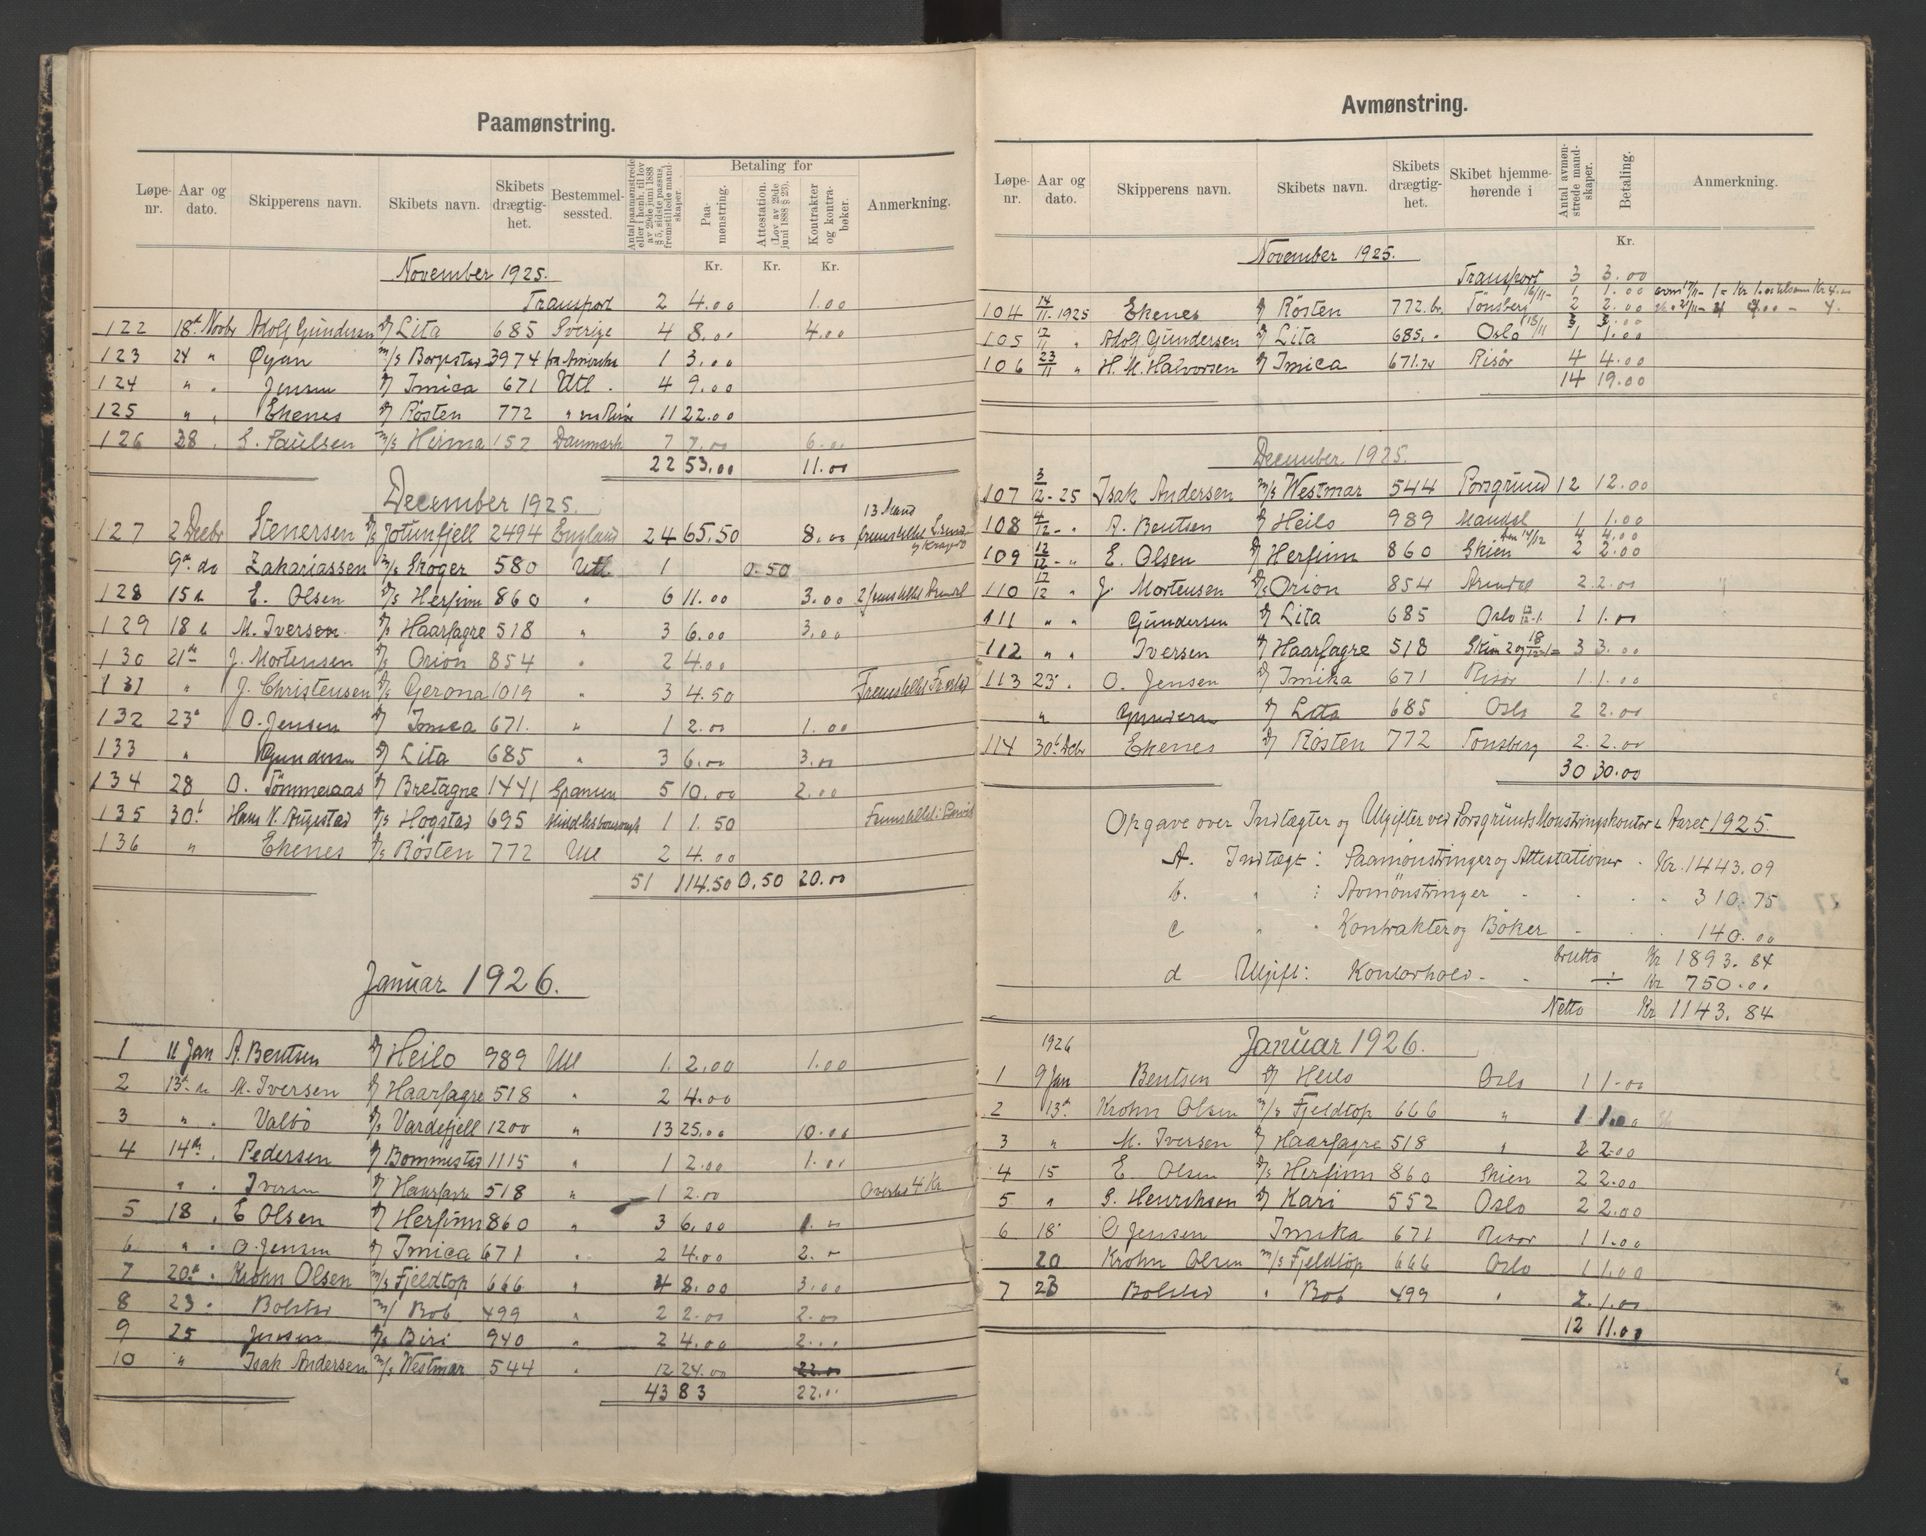 Paamønstring.
Løpe-nr. Aar og dato. Skipperens navn. Skibets navn. Skibets drægtig-het. Bestemmel-sessted. Antal paamønstrede eller i henh. til lov av 29de juni 1888 § 5, sidste passus, fremstillede mand-skaper. Betaling for Paa-mønstring. Attestation. (Lov av 29de juni 1888 § 23). Kontrakter og kontra-bøker. Anmerkning.
Kr. Kr. Kr.
November 1925.
Transport 2 4.00 1.00
122 18de Novbr Adolf Gundersen Lita 685 Sverige 4 8.00 4.00
123 24 " Øyan m/s Borgestad 3974 fra Amerika 1 3.00
124 " " Jensen Imica 671 Utl. 4 9.00
125 " " Ekenes Røsten 772 " 11 22.00
126 28 " S. Paulsen m/s Herma 152 Danmark 7 7.00 6.00
22 53.00 11.00
December 1925.
13 Mand
127 2 Decbr Stenersen Jotunfjell 2494 England 24 65.50 8.00
9de do Zakariassen m/s Skoger 580 Utl. 1 0.50
128 15 E. Olsen Herfinn 860 " 6 11.00 3.00
129 18 M. Iversen Haarfagre 518 " 3 6.00 3.00
130 21 J. Mortensen Orion 854 " 2 4.00
131 " J. Christensen Gerona 1019 " 3 4.50
132 23 O. Jensen Imica 671. " 1 2.00 1.00
133 " Gundersen Lita 685 " 3 6.00 3.00
134 28 O. Tømmeraas Bretagne 1441 Spanien 5 10.00 2.00
135 30 Hans N. Augestad Høgstad 695 1 1.50
136 " Ekenes Røsten 772 Utl 2 4.00
51 114.50 0.50 20.00
Januar 1926.
1 11 Jan A. Bentsen Heilo 989 Utl 1 2.00 1.00
2 13 M. Iversen Haarfagre 518 " 2 4.00
3 " Valbø Vardefjell 1200 " 13 25.00 10.00
4 14 Pedersen Bommestad 1115 " 1 2.00 1.00
" Iversen Haarfagre 518 " 1 2.00 4 Kr
5 18 E Olsen Herfinn 860 " 3 6.00
6 " O. Jensen Imica 671 " 2 4.00 2.
7 20 Krohn Olsen m/s Fjeldtop 666 " 4 8.00 3.00
8 23 Bolstad m/ Bob 499 " 2 2.00 2.00
9 25 Jensen Biri 940 " 2 4.00
10 " Isak Andersen m/s Westmar 544 " 12 24.00 22.00
43 83 22.00
Avmønstring.
Løpe-nr. Aar og dato. Skipperens navn. Skibets navn. Skibets drægtig-het. Skibet hjemme-hørende i Antal avmøn-strede mand-skaper. Betaling. Anmerkning.
Kr.
November 1925.
Transport 3 3.00
104 14/11 - 1925 Ekenes Røsten 772. br. Tønsberg
105 17/11 " Adolf Gundersen Lita 685. " Oslo 1 1.00
106 23/11 " H. M. Halvorsen Imica 671.74 Risør 4 4.00
14 19.00
December 1925.
107 3/12 - 25 Isak Andersen m/s Westmar 544 Porsgrund 12 12.00
108 4/12 - " A. Bentsen Heilo 989 Mandal 1 1.00
109 12/12 - " E. Olsen Herfinn 860 Skien 2 2.00
110 17/12 " J. Mortensen Orion 854 Arendal 2 2.00
111 " " Gundersen Lita 685 Oslo 1 1.00
112 " " Iversen Haarfagre 518 3 3.00
113 23 " O. Jensen Imika 671 Risør 1 1.00
" Gundersen Lita 685 Oslo 2 2.00
114 30 Decbr Ekenes Røsten 772 Tonsberg 2 2.00
30 30.00
Opgave over Indtægter og Utgifter ved Porsgrunds Mønstringskontor i Aaret 1925.
A. Indtægt: Paamønstringer og Attestationer. Kr. 1443.09
b. " : Avmönstringer " 310.75
c " " Kontrakter og Böker 140.00
Brutto Kr 1893.84
d Utgift: Kontorhold - ÷ Kr 750.00
Netto Kr 1143.84
1926 Januar 1926.
1 9 Jan Bentsen Heilo Oslo 1 1.00
2 13 Krohn Olsen m/s Fjeldtop 666 " 1 1.00
3 " M. Iversen Haarfagre 518 " 2 2.00
4 15 E. Olsen Herfinn 860 Skien 2 2.00
5 " S. Henriksen Kari 552 Oslo 2 2.00
6 18 O Jensen Imika 671 Risør 1 1.00
20 Krohn Olsen m/s Fjeldtop 666 Oslo 1 1.00
7 23 Bolstad " Bob 499 " 2. 1.00
12 11.00